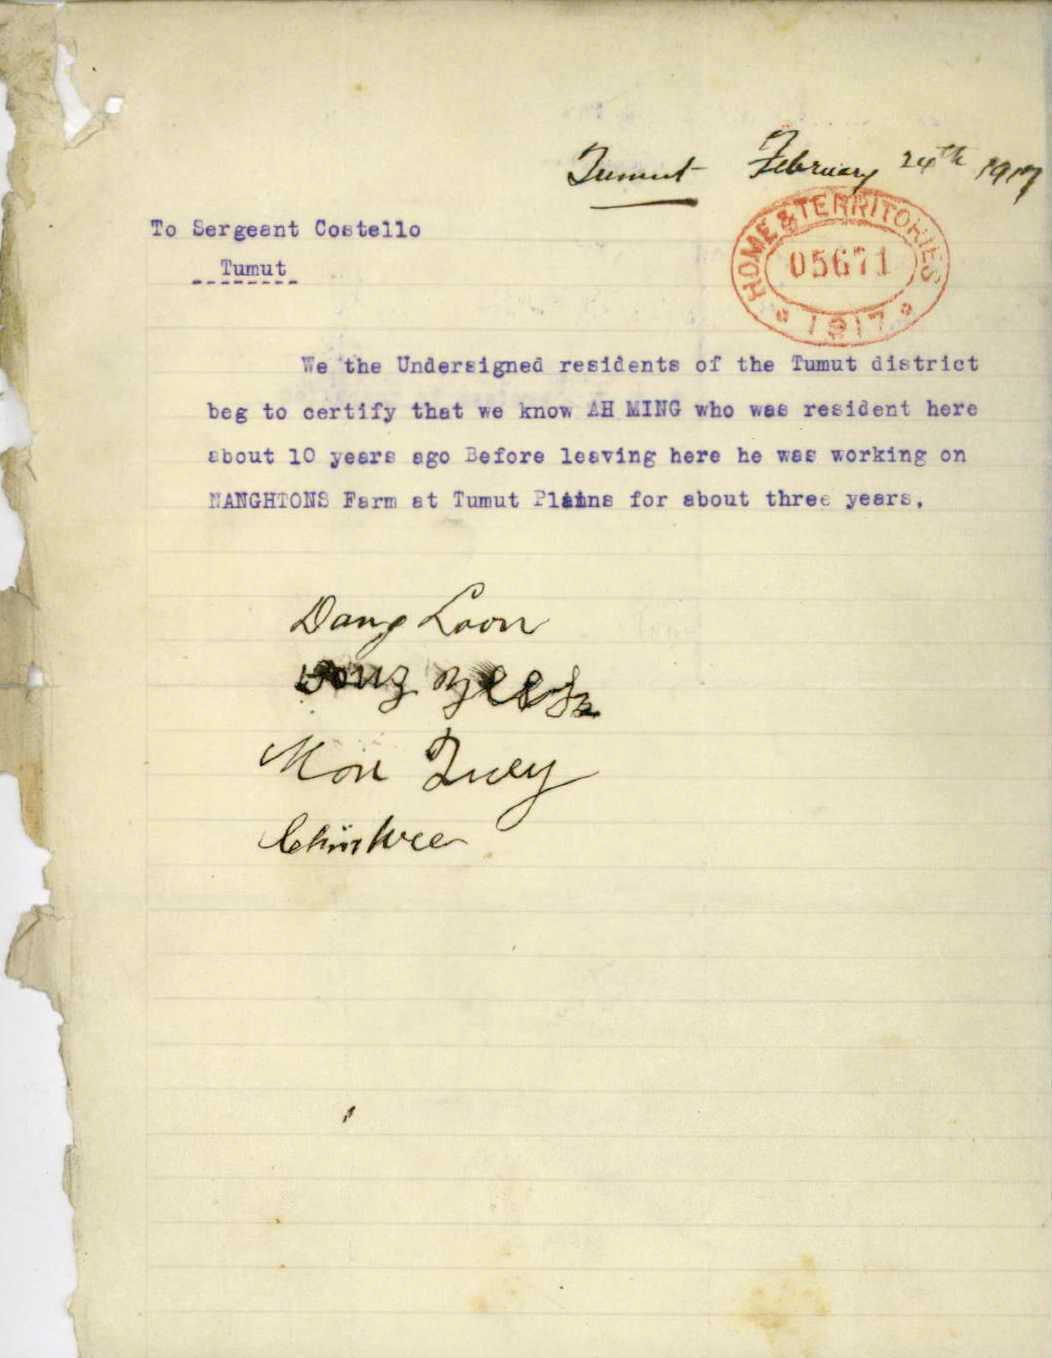 Tumut February 24th 1917
HOME & TERRITORIES
05671
1917
To Sergeant Costello
Tumut
We the Undersigned residents of the Tumut district
beg to certify that we know AH MING who was resident here
about 10 years ago Before leaving here he was working on
NANGHTONS Farm at Tumut Plains for about three years.
Dang Loon
Mon Tuey
Chin Wee